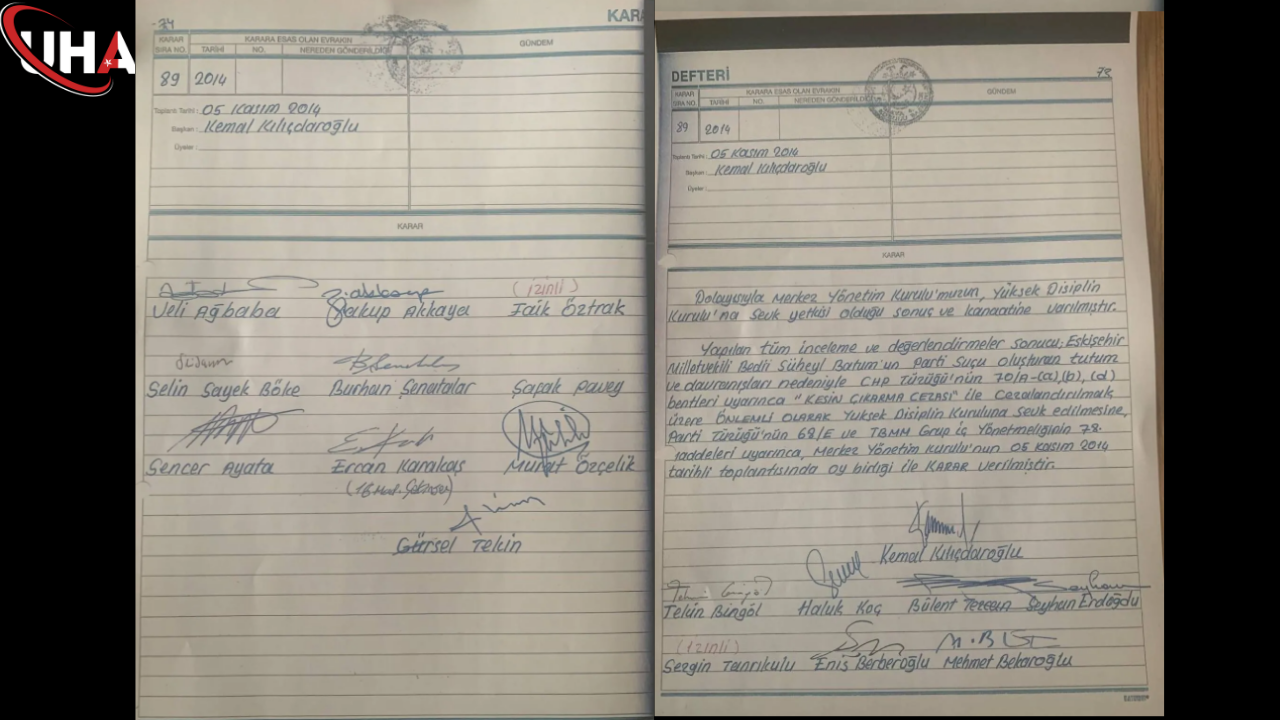 UHA
74
KARA
KARAR SIRA NO.
KARARA ESAS OLAN EVRAKIN
TARİHİ
NO.
NEREDEN GÖNDERİLDİĞİ
GÜNDEM
89
2014
Toplantı Tarihi: 05 Kasım 2014
Başkan: Kemal Kılıçdaroğlu
Üyeler:
KARAR
(izinli)
Veli Ağbaba Yakup Akkaya Faik Öztrak
Selin Sayek Böke Burhan Şenatalar Şafak Pavey
Sencer Ayata Ercan Karakaş Murat Özçelik
Gürsel Tekin
DEFTERİ
73
KARAR SIRA NO.
KARARA ESAS OLAN EVRAKIN
TARİHİ
NO.
NEREDEN GÖNDERİLDİĞİ
GÜNDEM
89
2014
Toplantı Tarihi: 05 Kasım 2014
Başkan: Kemal Kılıçdaroğlu
Üyeler:
KARAR
Dolayısıyla Merkez Yönetim Kurulu'muzun, Yüksek Disiplin
Kurulu'na Sevk yetkisi olduğu sonuç ve kanaatine varılmıştır.
Yapılan tüm inceleme ve değerlendirmeler sonucu; Eskişehir
Milletvekili Bedii Süheyl Batum'un Parti Suçu oluşturan tutum
ve davranışları nedeniyle CHP Tüzüğü'nün 70/A-(a), (b), (d)
bentleri uyarınca "KESİN ÇIKARMA CEZASI" ile Cezalandırılmak
üzere ÖNLEMLİ OLARAK Yüksek Disiplin Kuruluna Sevk edilmesine,
Parti Tüzüğü'nün 68/E ve TBMM Grup İç Yönetmeliğinin 78.
maddeleri uyarınca, Merkez Yönetim Kurulu'nun 05 Kasım 2014
tarihli toplantısında oy birliği ile KARAR verilmiştir.
Kemal Kılıçdaroğlu
Tekin Bingöl Haluk Koç Bülent Tezcan Seyhan Erdoğdu
(izinli)
Sezgin Tanrıkulu Enis Berberoğlu Mehmet Bekaroğlu